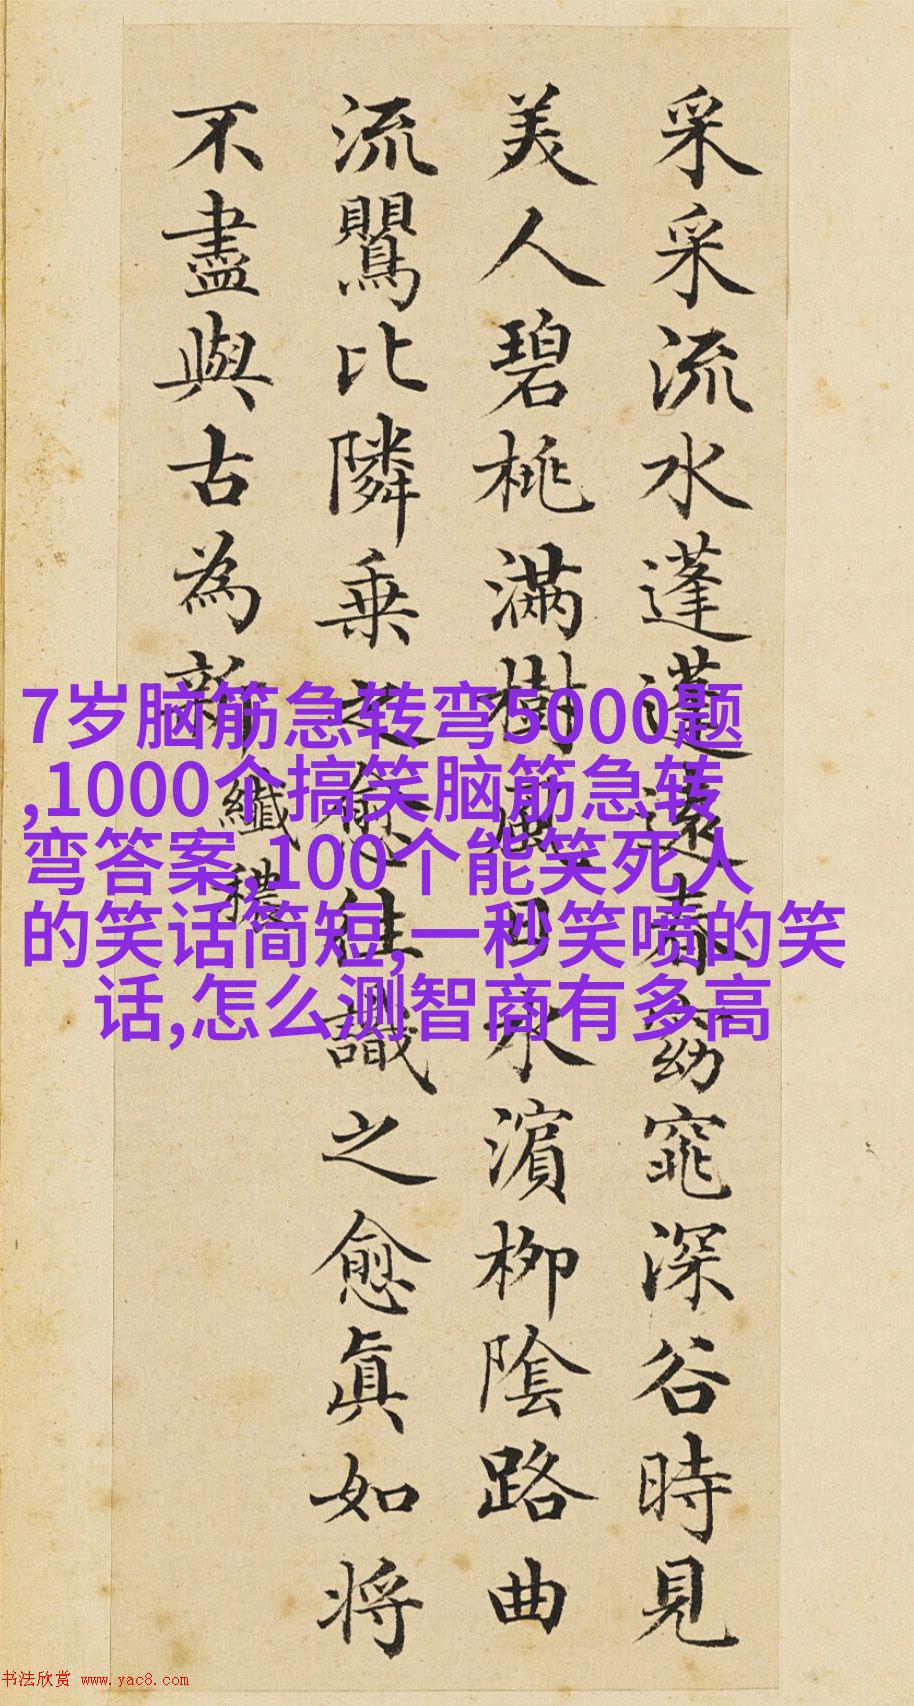 采采流水蓬蓬遠春窈窕深谷時見
美人碧桃滿樹風日水濱柳陰路曲
流鸎比隣乗之愈往識之愈眞如将
不盡與古為新
纖穠
7岁脑筋急转弯5000题
,1000个搞笑脑筋急转
弯答案,100个能笑死人
的笑话简短,一秒笑喷的笑
话,怎么测智商有多高
书法欣赏 www.yac8.com